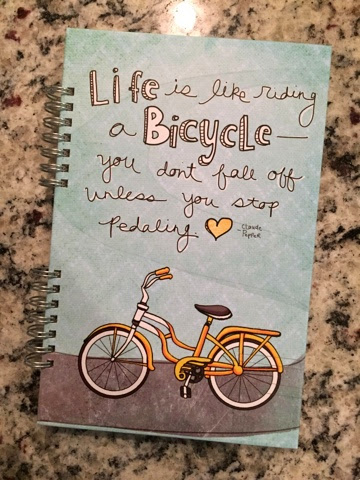 Life is like riding
a Bicycle—
you dont fall off
unless you stop
Pedaling.
-Claude
Pepper